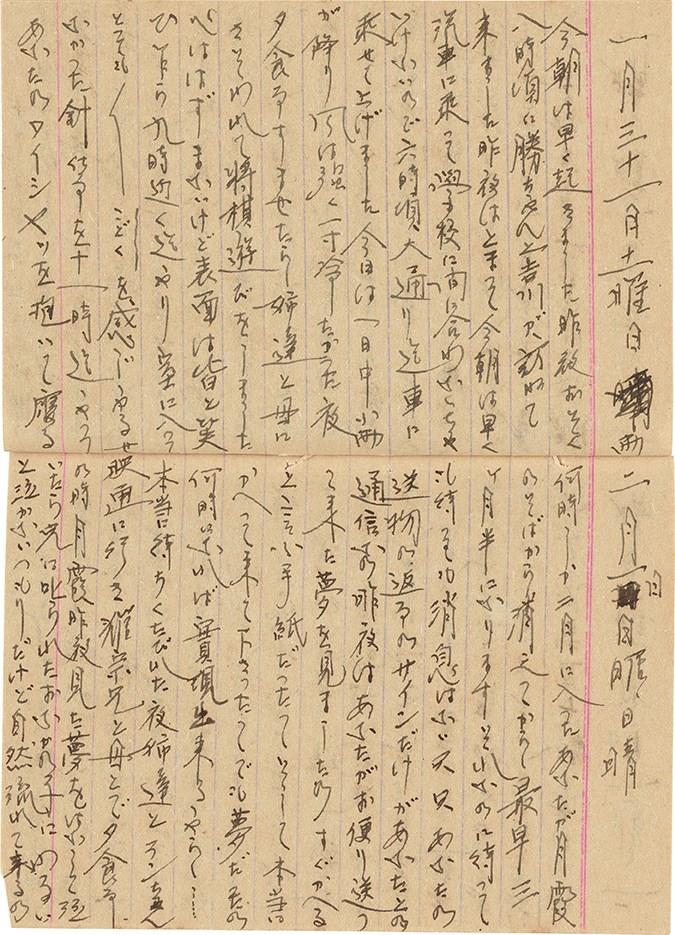 一月三十一日土曜日 雨
今朝は早く起きました昨夜おそく
八時頃に勝ちゃんと吉川が訪ねて
来ました昨夜はとまって今朝は早く
汽車に乗って学校に間に合わなくちゃ
いけないので六時頃大通り迄車に
乗せて上げました今日は一日中小雨
が降り風は強く一寸冷たかった夜
夕食をすませたら姉達と母に
さそわれて将棋遊びをしました
心ははずまないけど表面は皆と笑
ひながら九時近く迄やり室に入って
とても
こどくを感じ
なかった針仕事を十一時迄やって
あなたのワイシャツを抱いて寝る
二月一日日曜日晴
何時しか二月に入ったあなたが月霞
のそばから消えてから最早三
ヶ月半になりますそれなのに待って
も待っても消息はない只あなたの
送物の返るのサインだけがあなたとの
通信なの昨夜はあなたがお便り送っ
て来た夢を見ましたの すぐかへる
と言ふ手紙だったっていって本当に
かへって来て下さったってでも夢だもの
何時になれば実現出来るやら……
本当に待ちくたびれた夜姉達と ちゃん
映画に行き 宗兄と母とで夕食
の時月霞昨夜見た夢をはなして
いたら兄に叱られた
と泣かないつもりだけど自然流れて来るの